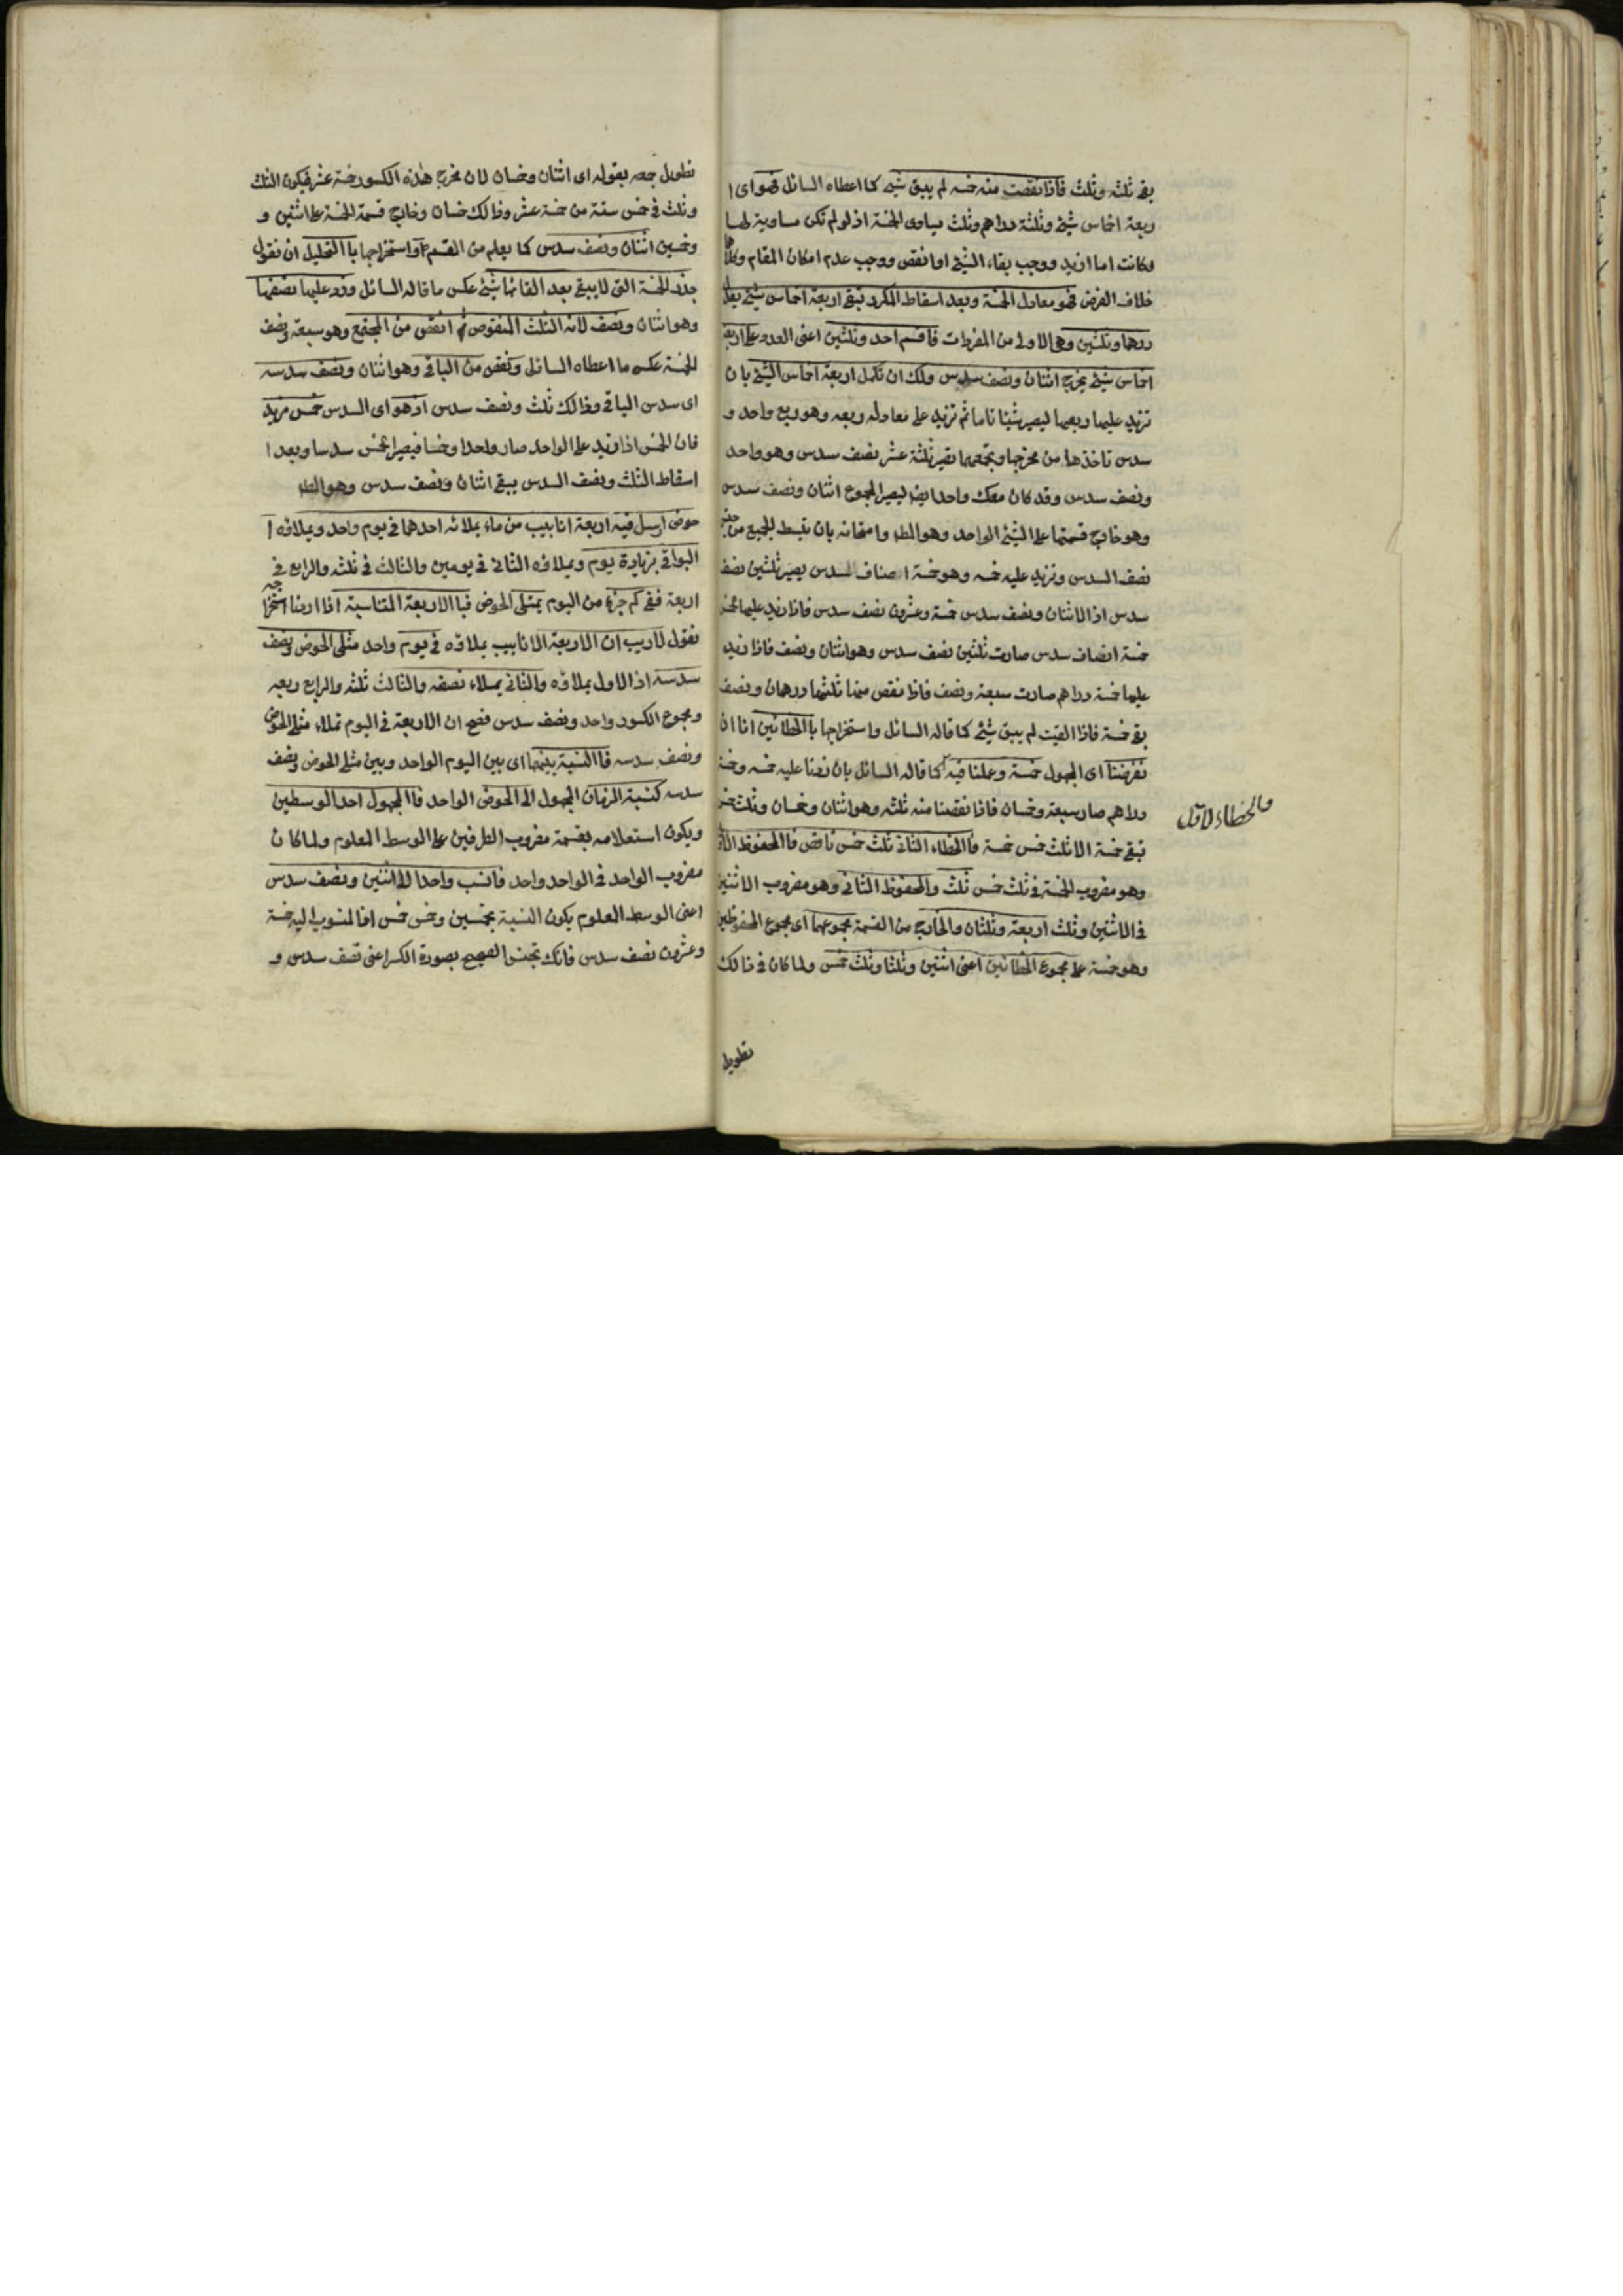 بقى ثلثه وثلث فاذا نقصت منه خمسه لم يبق شيء كما اعطاه السائل فهو اى ا
ربعة اخماس شيئ وثلثة دراهم وثلث يساوى الخمسة اذ لو لم تكن مساوية لها
لكانت اما ازيد ووجب بقاء الشيئ او انقص ووجب عدم امكان المقام وكلاهما
خلاف الفرض فهو معادل الخمسة وبعد اسقاط المكرر تبقى اربعة اخماس شيئ يعدل
درهما وثلثين وهى الاولى من المفردات فاقسم احد وثلثين اعنى العدد على اربعة
اخماس شيئ يخرج اثنان ونصف سدس ولك ان تكمل اربعة اخماس الشيئ بان
تزيد عليها ربعها ليصير شيئا تاما ثم تزيد على معادله ربعه وهو ربع واحد و
سدس تاخذهما من مخرجها وتجمعهما تصير ثلثة عشر نصف سدس وهو واحد
ونصف سدس وقد كان معك واحد ايضا ليصير المجموع اثنان ونصف سدس
وهو خارج قسمتها على الشيئ الواحد وهو المط وامتحانه بان تبسط الجميع من جنس
نصف السدس وتزيد عليه خمسه وهو خمسة اصناف السدس يصير ثلثين نصف
سدس اذ الاثنان ونصف سدس خمسة وعشرون نصف سدس فاذا زيد عليها خمسها
خمسة انصاف سدس صارت ثلثين نصف سدس وهو اثنان ونصف فاذا زيد
عليها خمسة دراهم صارت سبعة ونصف فاذا نقص منها ثلثها درهمان ونصف
بقى خمسة فاذا القيت لم يبق شيئ كما قاله السائل واستخراجها باالخطائين انا ان
نفرضنا اى المجهول خمسة وعلنا فيه كما قاله السائل بان زدنا عليه خمسه وخمسة
دراهم صار سبعة وخمسان فاذا نقصنا منه ثلثه وهو اثنان وخمسان وثلث خمس
تبقى خمسة الا ثلث خمس خمسة فاالخطاء الثانى ثلث خمس ناقص فاالمحفوظ الاول
وهو مضروب الخمسة فى ثلث خمس ثلث والمحفوظ الثانى وهو مضروب الاثنين
فى الاثنين وثلث اربعة وثلثان والخارج من القسمة مجموعهما اى مجموع المحفوظين
وهو خمسة على مجموع الخطائين اعنى اثنين وثلثا وثلث خمس ولما كان فى ذالك
والخطاء الاول
تطويل
تطويل جمعه بقوله اى اثنان وخمسان لان مخرج هذه الكسور خمسة عشر فيكون الثلث
وثلث فى خمس ستة من خمسة عشر وذالك خمسان وخارج قسمة الخمسة على اثنين و
وخمسين اثنان ونصف سدس كما يعلم من القسمة واستخراجها باالتحليل ان نقول
جذر الخمسة التى لا يبقى بعد القائها شيئ عكس ما قاله السائل وزد عليها نصفها
وهو اثنان ونصف لانه الثلث المنقوص ثم انقص من المجتمع وهو سبعة ونصف
الخمسة عكس ما اعطاه السائل وتنقص من الباقى وهو اثنان ونصف سدسه
اى سدس الباقى وذالك ثلث ونصف سدس اذ هو اى السدس خمس مزيد
فان الخمس اذا زيد على الواحد صار واحدا وخمسا فيصير الخمس سدسا وبعد ا
اسقاط الثلث ونصف السدس يبقى اثنان ونصف سدس وهو المط
حوض ارسل فيه اربعة انابيب من ماء يملائه احدهما فى يوم واحد ويملاؤه ا
البواقى بزيادة يوم ويملاؤه الثانى فى يومين والثالث فى ثلثه والرابع فى
اربعة ففى كم جزء من اليوم يمتلى الحوض فباالاربعة المتناسبة اذا اردنا استخراجه
نقول لاريب ان الاربعة الانابيب يملاؤه فى يوم واحد مثلى الحوض ونصف
سدسه اذ الاول يملاؤه والثانى يملاء نصفه والثالث ثلثه والرابع ربعه
ومجموع الكسور واحد ونصف سدس فصح ان الاربعة فى اليوم تملاء مثلى الحوض
ونصف سدسه فاالنسبة بينهما اى بين اليوم الواحد وبين مثلى الحوض ونصف
سدسه كنسبة الزمان المجهول الى الحوض الواحد فاالمجهول احد الوسطين
ويكون استعلامه بقسمة مضروب الطرفين على الوسط المعلوم ولما كان
مضروب الواحد فى الواحد واحد فانسب واحدا الى اثنين ونصف سدس
اعنى الوسط المعلوم يكون النسبة بخمسين وخمس خمس اذ المنسوب اليه خمسة
وعشرون نصف سدس فانك تجنس الصحيح بصورة الكسر اعنى نصف سدس و